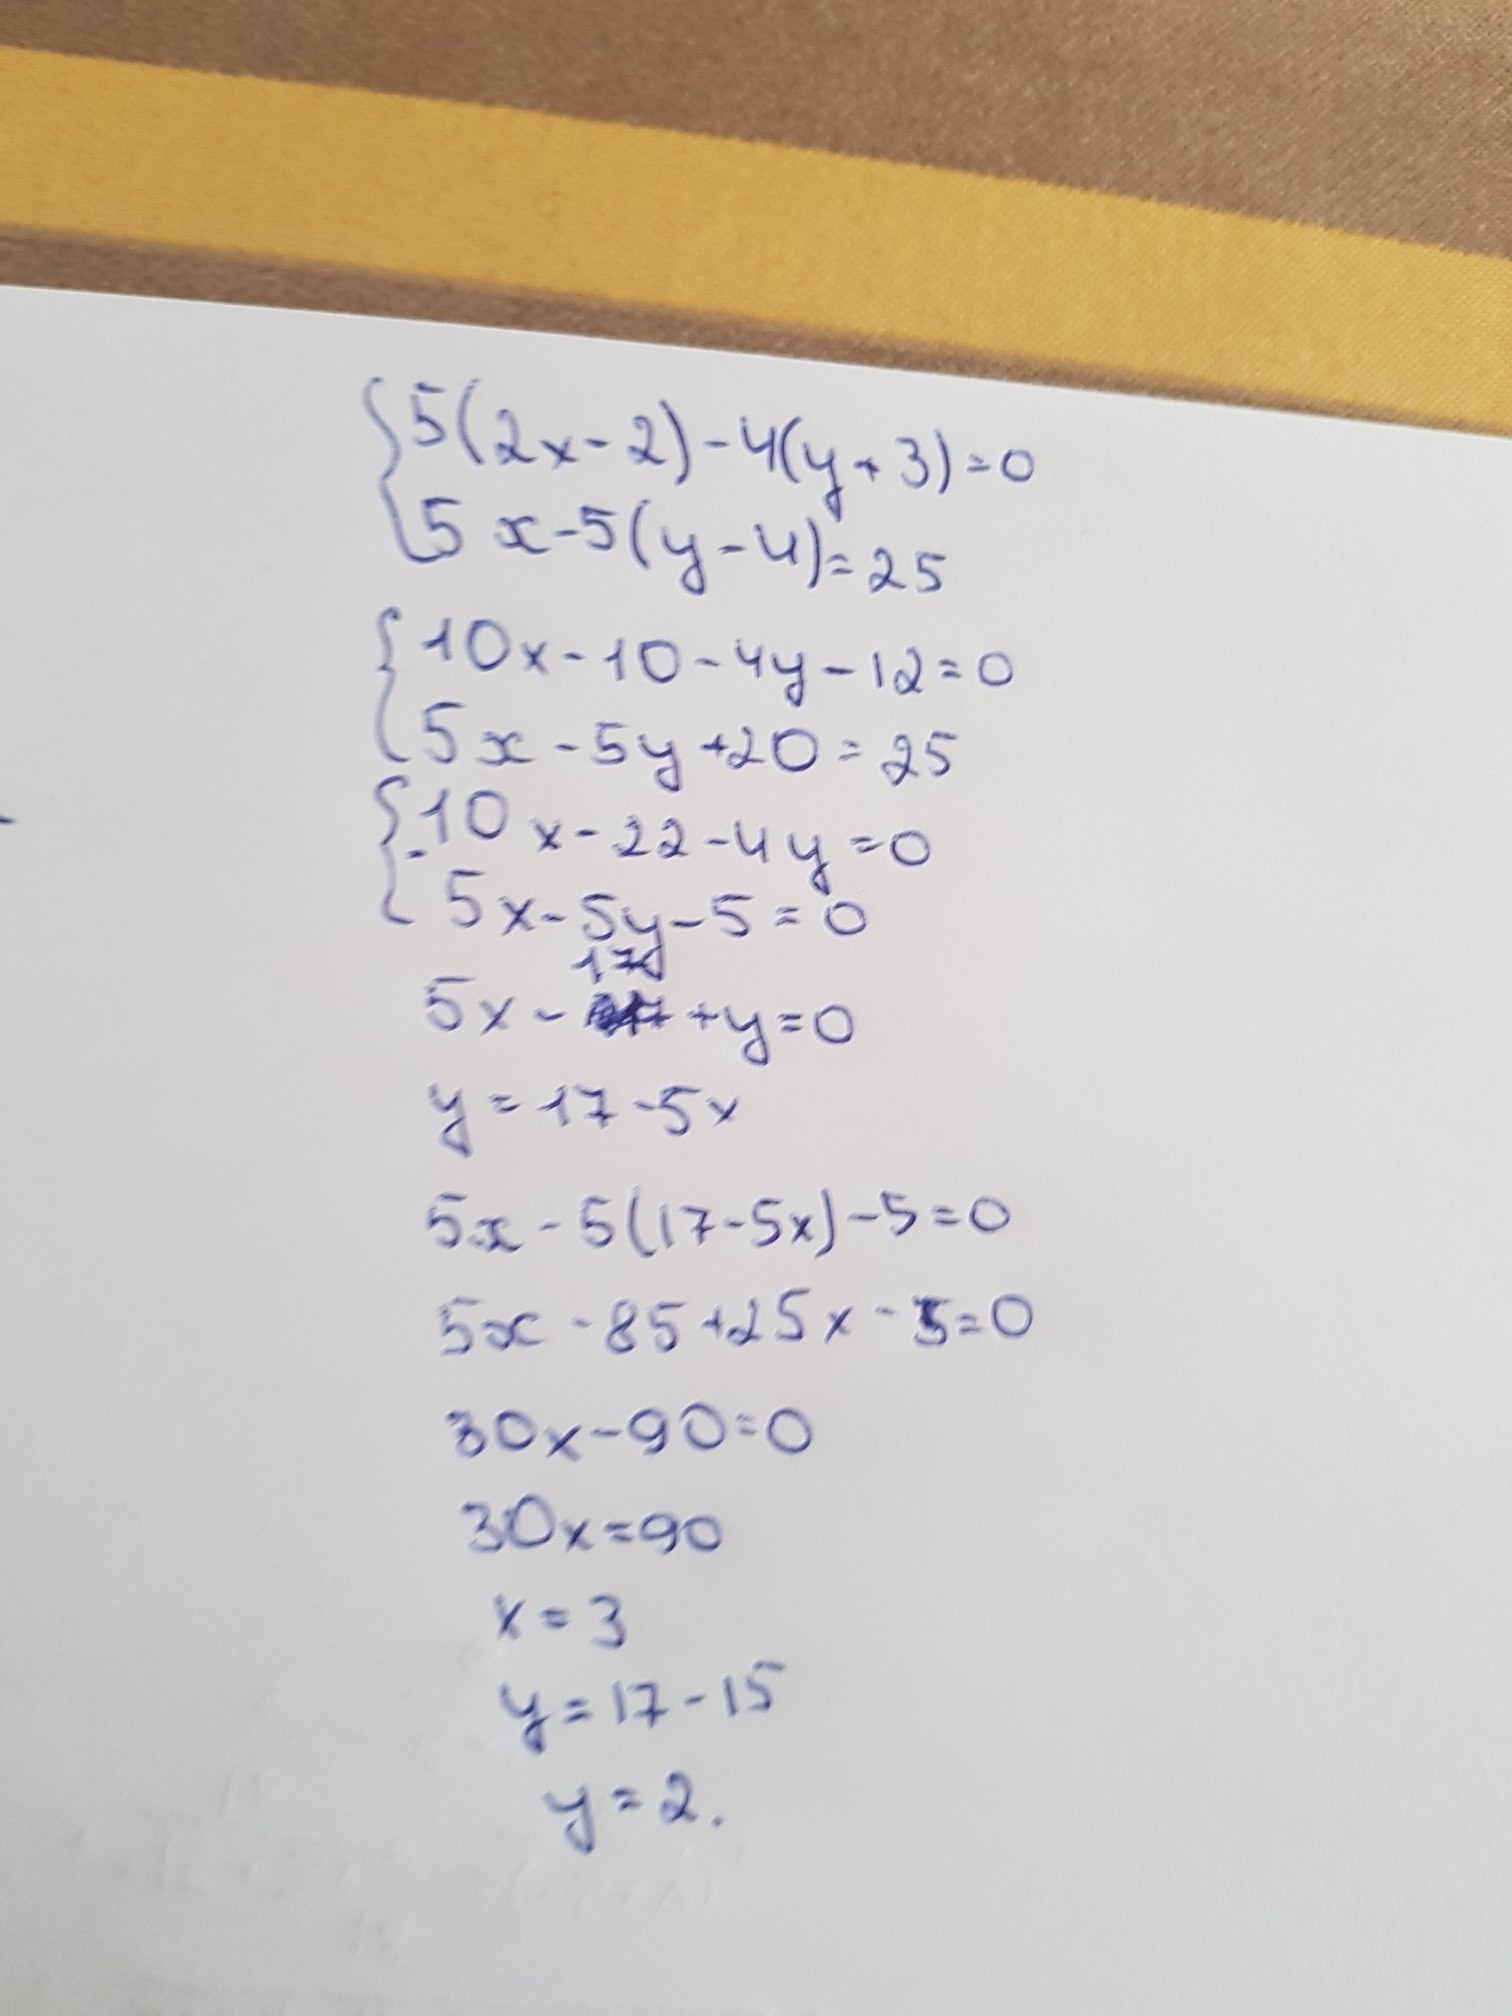 {5(2x-2)-4(y+3)=0
{5x-5(y-4)=25
{10x-10-4y-12=0
{5x-5y+20=25
{10x-22-4y=0
- 5x-5y-5=0
17
5x- +y=0
y=17-5x
5x-5(17-5x)-5=0
5x-85+25x-5=0
30x-90=0
30x=90
x=3
y=17-15
y=2.